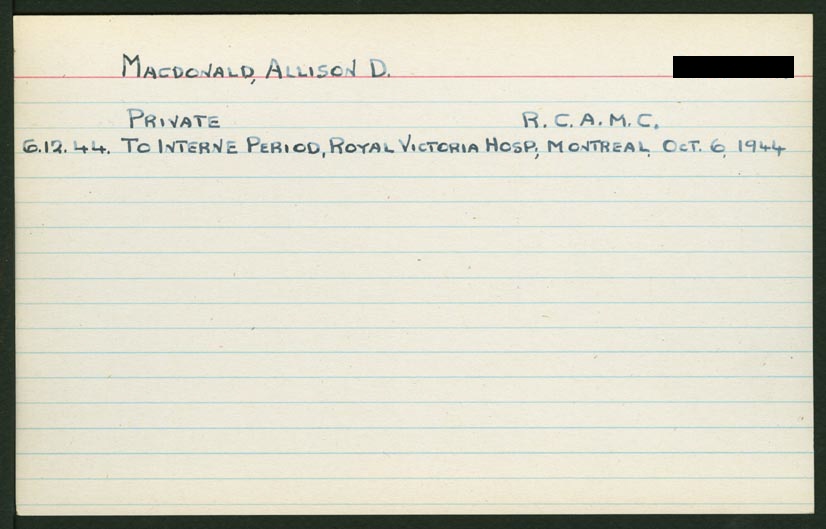 MACDONALD, ALLISON D.
PRIVATE R.C.A.M.C.
6.12.44. TO INTERNE PERIOD, ROYAL VICTORIA HOSP., MONTREAL, OCT. 6, 1944